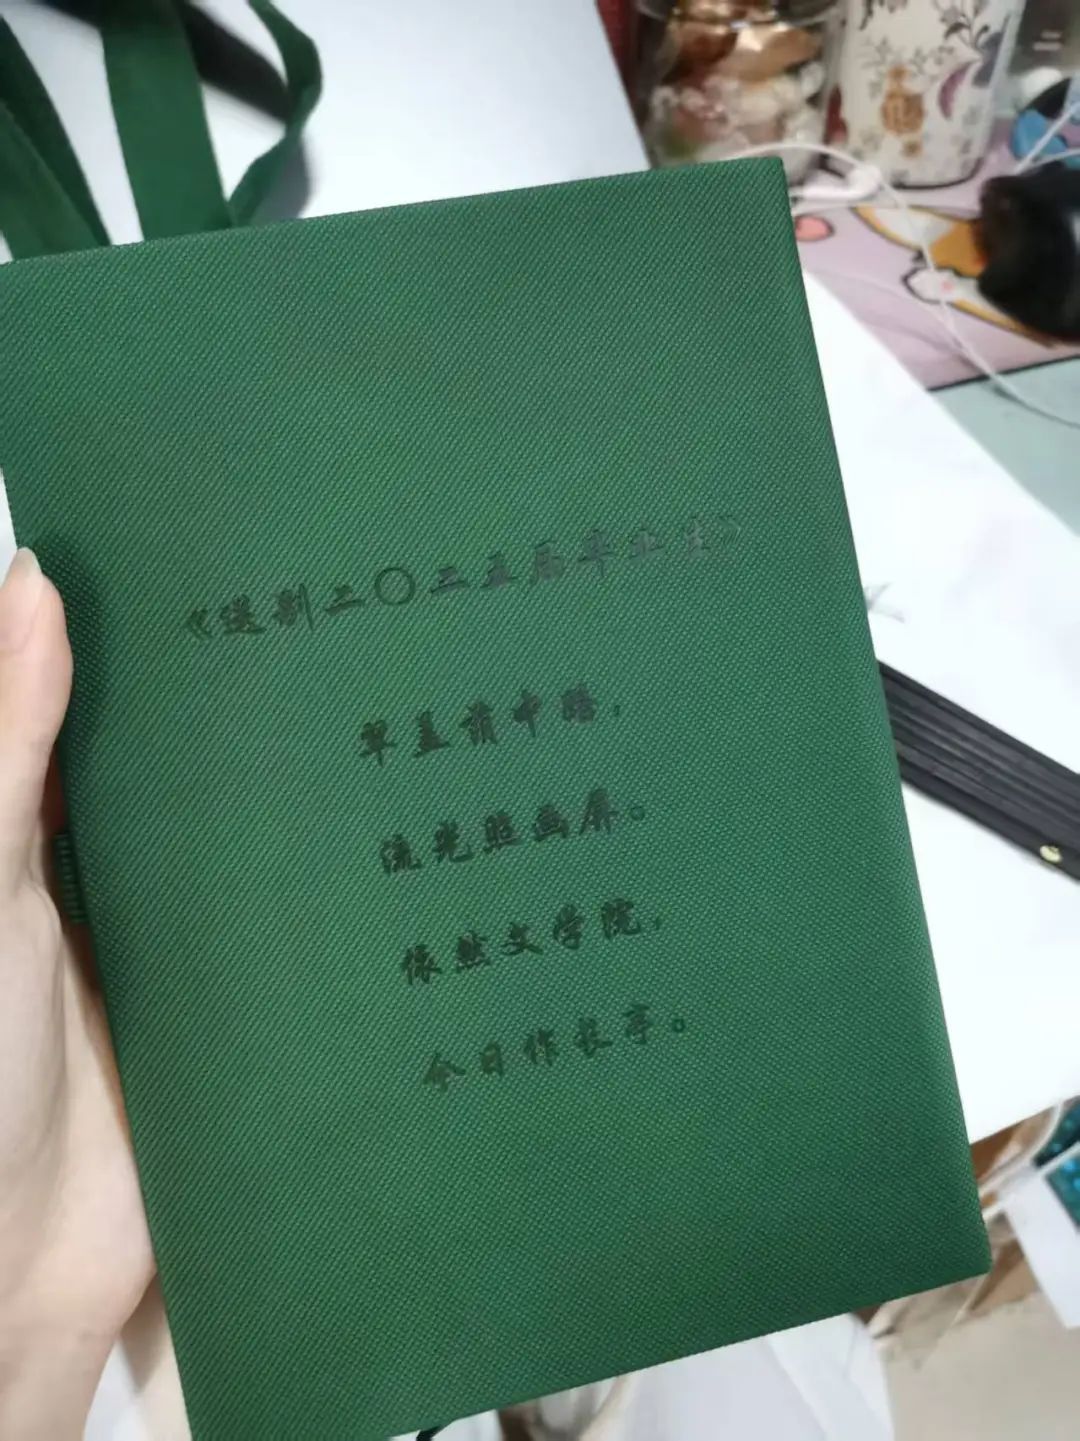 《送别二〇二五届毕业生》
翠盖前中路，
流光照画屏。
依然文学院，
今日作长亭。